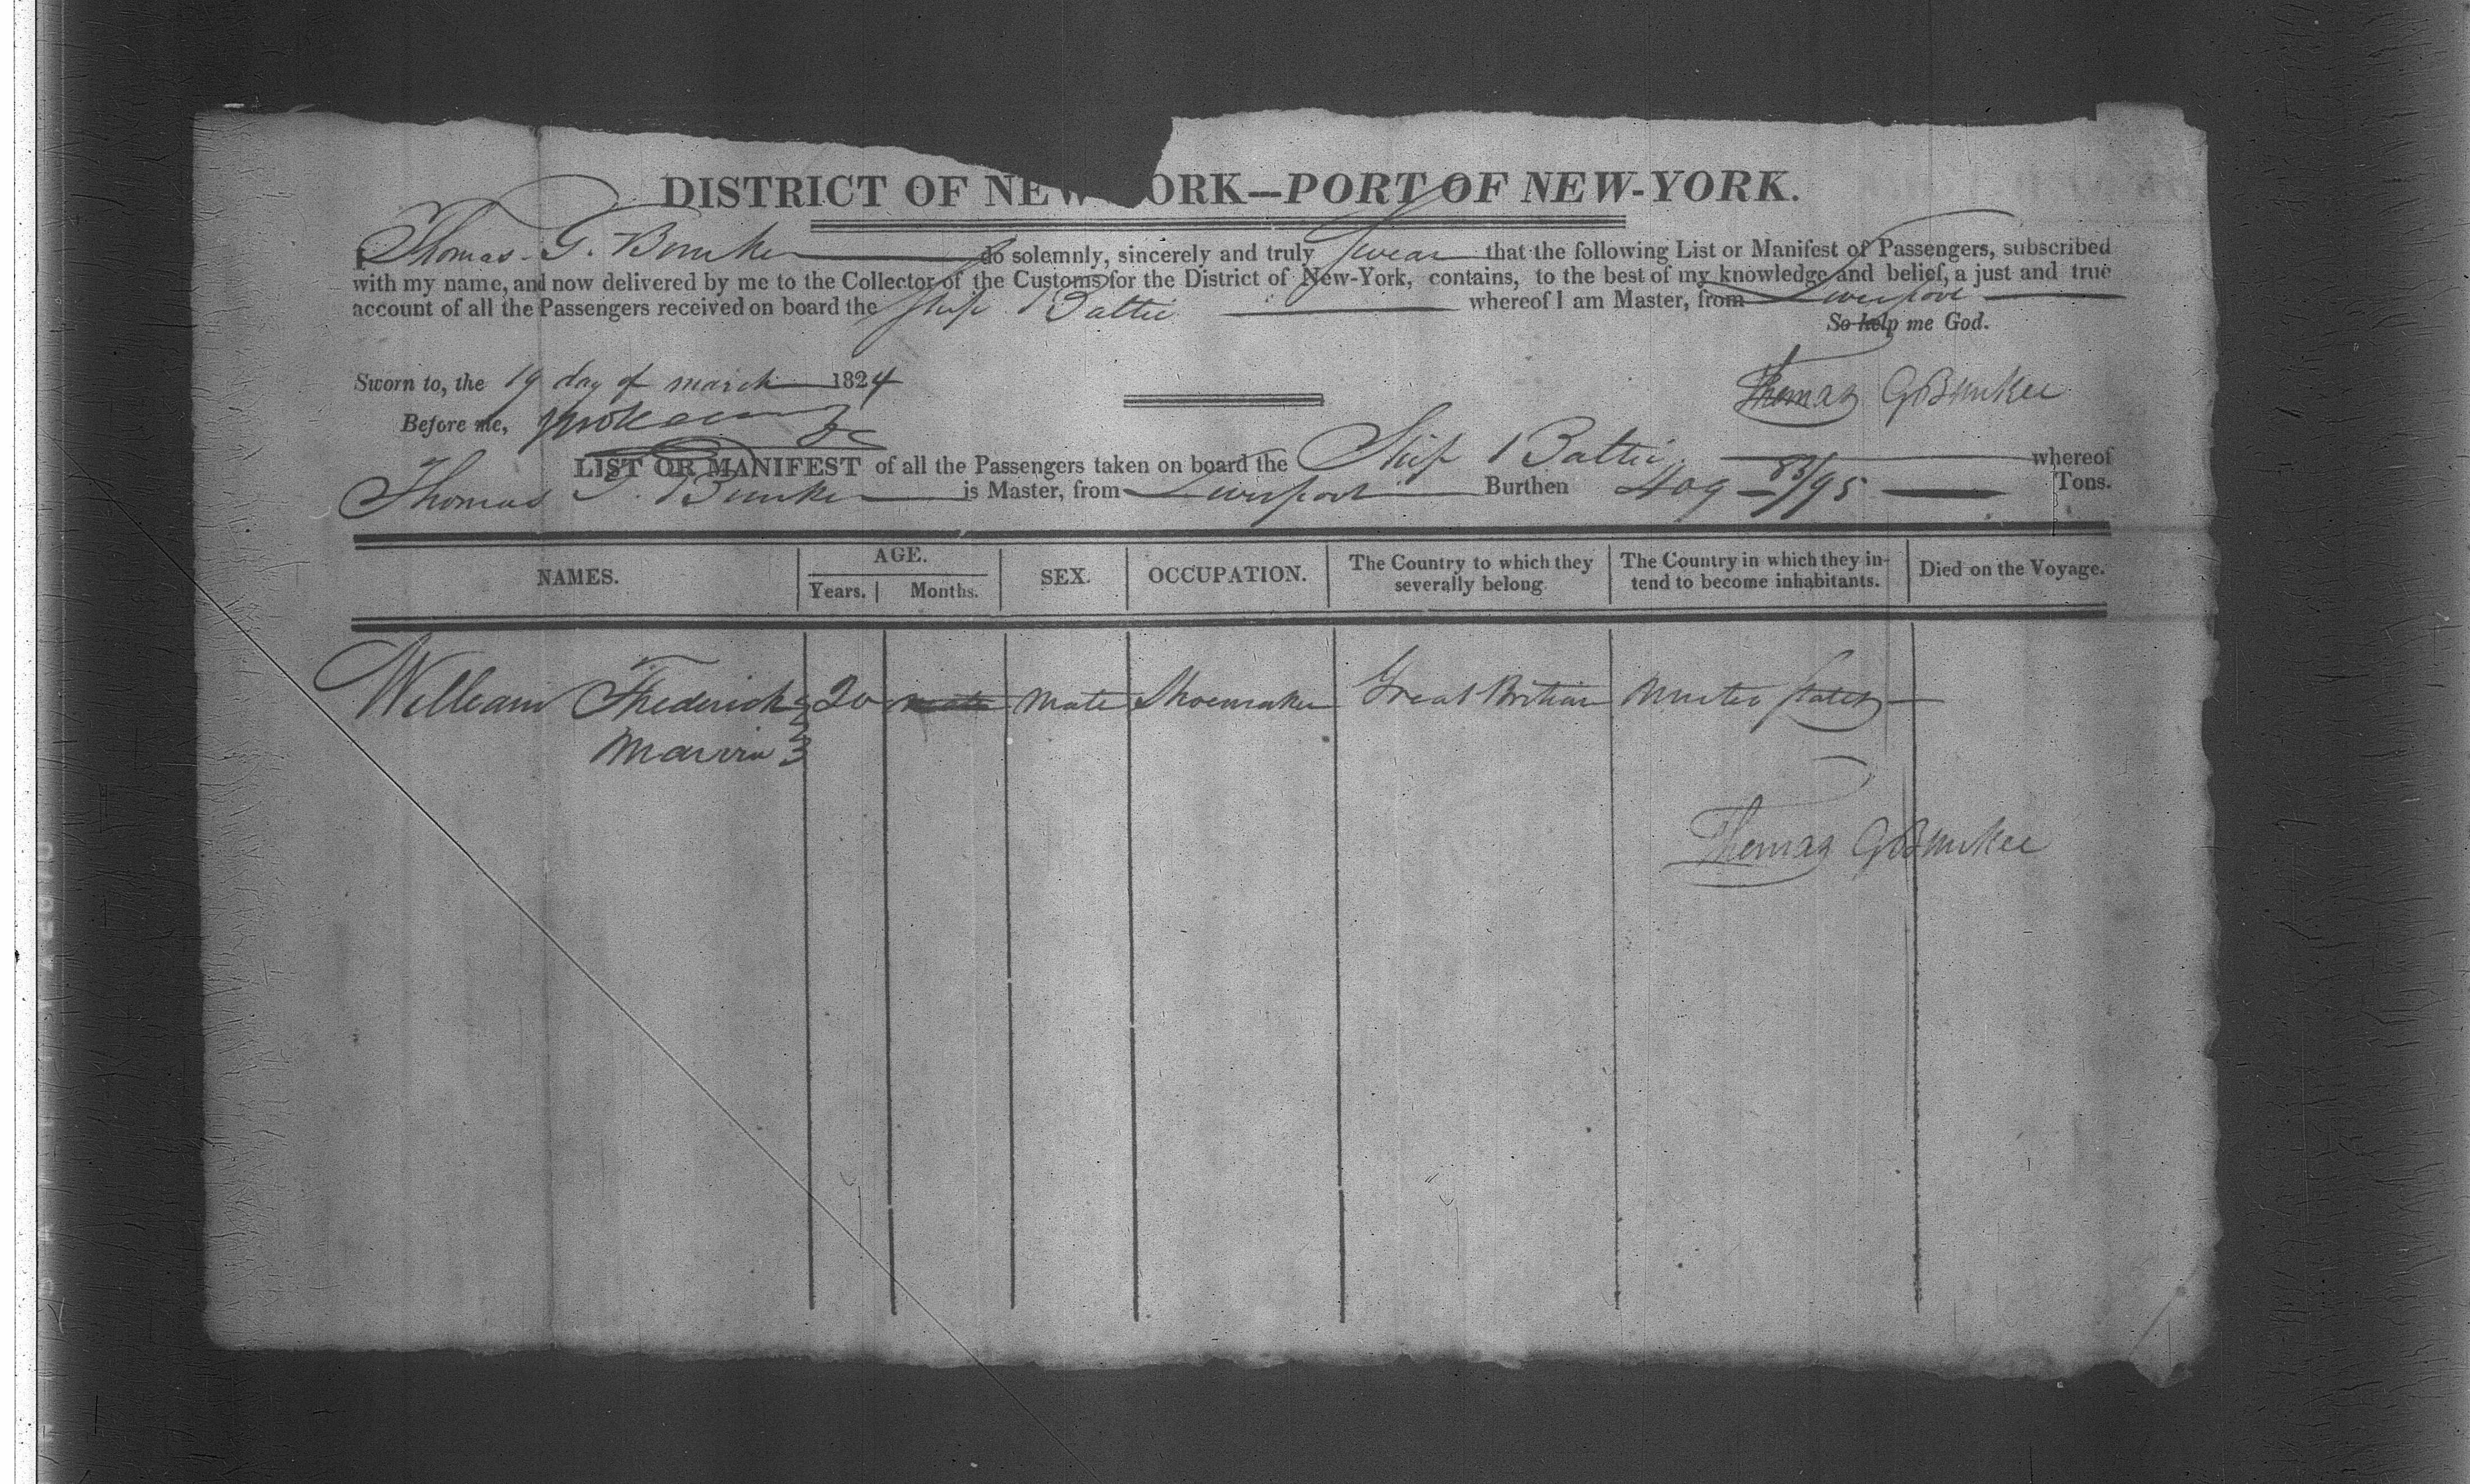 DISTRICT OF NEW YORK—PORT OF NEW-YORK.
I Thomas G. Bunker do solemnly, sincerely and truly Swear that the following List or Manifest of Passengers, subscribed
with my name, and now delivered by me to the Collector of the Customs for the District of New-York, contains, to the best of my knowledge and belief, a just and true
account of all the Passengers received on board the Ship Baltic whereof I am Master, from Liverpool
So help me God.
Sworn to, the 19 day of march 1824
Thomas G Bunker
Before me,
LIST OR MANIFEST of all the Passengers taken on board the Ship Baltic whereof
Thomas G. Bunker is Master, from Liverpool Burthen 409 83/95 Tons.
NAMES. AGE. SEX. OCCUPATION. The Country to which they severally belong The Country in which they intend to become inhabitants. Died on the Voyage.
Years. Months.
William Frederick 20 Male Shoemaker Great Britian United States
Marvin
Thomas G Bunker